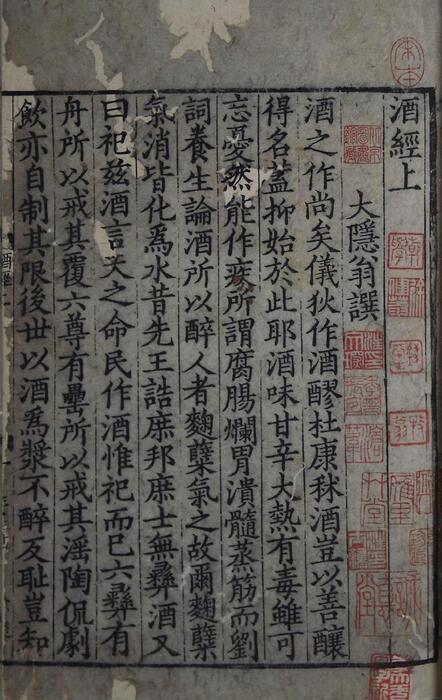 酒經上
大隱翁譔
酒之作尚矣儀狄作酒醪杜康秫酒豈以善釀
得名蓋抑始於此耶酒味甘辛大熱有毒雖可
忘憂然能作疾所謂腐腸爛胃潰髓蒸筋而劉
詞養生論酒所以醉人者麴櫱氣之故爾麴櫱
氣消皆化爲水昔先王誥庶邦庶士無彝酒又
曰祀兹酒言天之命民作酒惟祀而已六彝有
舟所以戒其覆六尊有罍所以戒其淫陶侃劇
飲亦自制其限後世以酒爲漿不醉反恥豈知